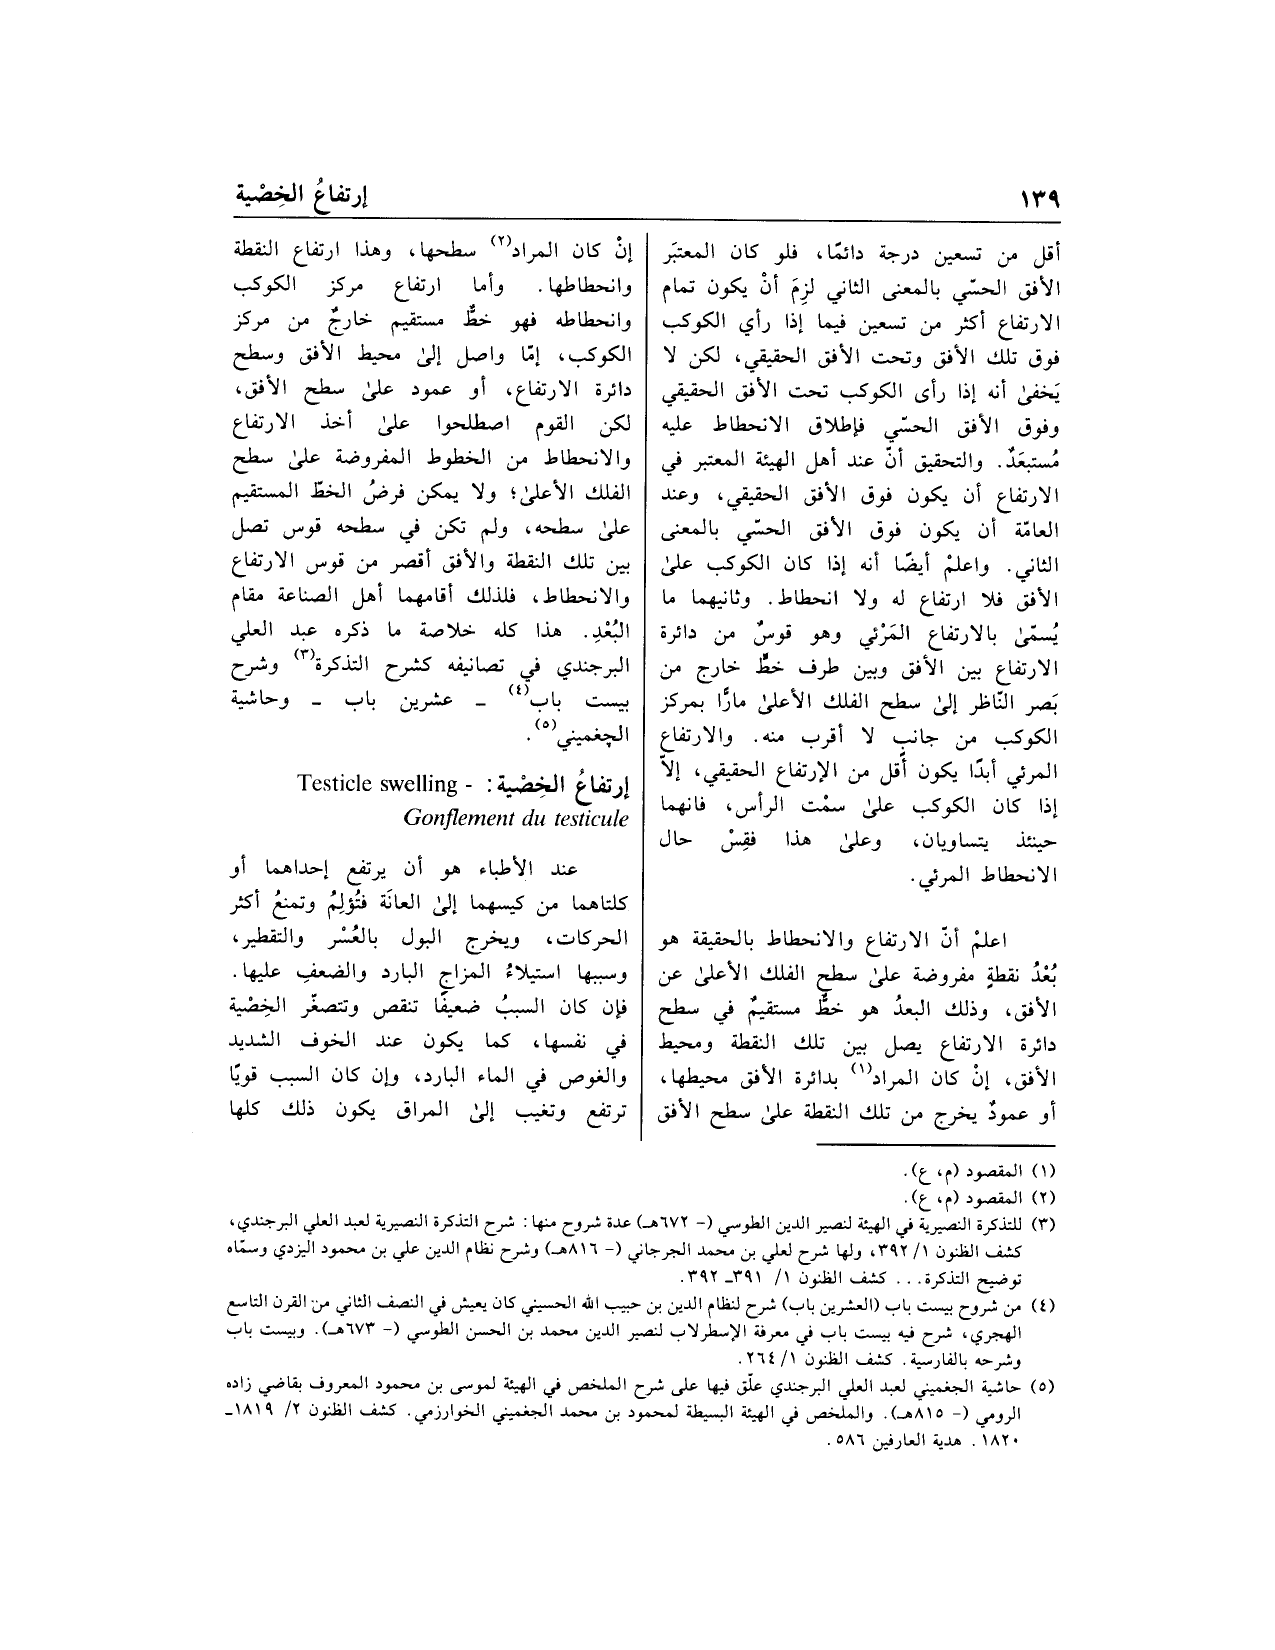 ١٣٩
إرتفاعُ الخِصْية
أقل من تسعين درجة دائمًا، فلو كان المعتبَر
الأفق الحسّي بالمعنى الثاني لزِمَ أنْ يكون تمام
الارتفاع أكثر من تسعين فيما إذا رأي الكوكب
فوق تلك الأفق وتحت الأفق الحقيقي، لكن لا
يَخفىٰ أنه إذا رأى الكوكب تحت الأفق الحقيقي
وفوق الأفق الحسّي فإطلاق الانحطاط عليه
مُستبعَدٌ. والتحقيق أنّ عند أهل الهيئة المعتبر في
الارتفاع أن يكون فوق الأفق الحقيقي، وعند
العامّة أن يكون فوق الأفق الحسّي بالمعنى
الثاني. واعلمْ أيضًا أنه إذا كان الكوكب علىٰ
الأفق فلا ارتفاع له ولا انحطاط. وثانيهما ما
يُسمّىٰ بالارتفاع المَرْئي وهو قوسٌ من دائرة
الارتفاع بين الأفق وبين طرف خطٍّ خارج من
بَصر النّاظر إلىٰ سطح الفلك الأعلىٰ مارًّا بمركز
الكوكب من جانبٍ لا أقرب منه. والارتفاع
المرئي أبدًا يكون أقل من الإرتفاع الحقيقي، إلاّ
إذا كان الكوكب علىٰ سمْت الرأس، فانهما
حينئذ يتساويان، وعلىٰ هذا فقِسْ حال
الانحطاط المرئي.
اعلمْ أنّ الارتفاع والانحطاط بالحقيقة هو
بُعْدُ نقطةٍ مفروضة علىٰ سطح الفلك الأعلىٰ عن
الأفق، وذلك البعدُ هو خطٌّ مستقيمٌ في سطح
دائرة الارتفاع يصل بين تلك النقطة ومحيط
الأفق، إنْ كان المراد(١) بدائرة الأفق محيطها،
أو عمودٌ يخرج من تلك النقطة علىٰ سطح الأفق
إنْ كان المراد(٢) سطحها، وهذا ارتفاع النقطة
وانحطاطها. وأما ارتفاع مركز الكوكب
وانحطاطه فهو خطٌّ مستقيم خارجٌ من مركز
الكوكب، إمّا واصل إلىٰ محيط الأفق وسطح
دائرة الارتفاع، أو عمود علىٰ سطح الأفق،
لكن القوم اصطلحوا علىٰ أخذ الارتفاع
والانحطاط من الخطوط المفروضة علىٰ سطح
الفلك الأعلىٰ؛ ولا يمكن فرضُ الخطّ المستقيم
علىٰ سطحه، ولم تكن في سطحه قوس تصل
بين تلك النقطة والأفق أقصر من قوس الارتفاع
والانحطاط، فلذلك أقامهما أهل الصناعة مقام
البُعْدِ. هذا كله خلاصة ما ذكره عبد العلي
البرجندي في تصانيفه كشرح التذكرة(٣) وشرح
بيست باب(٤) ـ عشرين باب ـ وحاشية
الچغميني(٥).
إرتفاعُ الخِصْية: - Testicle swelling
Gonflement du testicule
عند الأطباء هو أن يرتفع إحداهما أو
كلتاهما من كيسهما إلىٰ العانَة فتُؤلِمُ وتمنعُ أكثر
الحركات، ويخرج البول بالعُسْر والتقطير،
وسببها استيلاءُ المزاج البارد والضعفِ عليها.
فإن كان السببُ ضعيفًا تنقص وتتصغّر الخِصْية
في نفسها، كما يكون عند الخوف الشديد
والغوص في الماء البارد، وإن كان السبب قويًا
ترتفع وتغيب إلىٰ المراق يكون ذلك كلها
(١) المقصود (م، ع).
(٢) المقصود (م، ع).
(٣) للتذكرة النصيرية في الهيئة لنصير الدين الطوسي (- ٦٧٢هـ) عدة شروح منها: شرح التذكرة النصيرية لعبد العلي البرجندي،
كشف الظنون ١/ ٣٩٢، ولها شرح لعلي بن محمد الجرجاني (- ٨١٦هـ) وشرح نظام الدين علي بن محمود اليزدي وسمّاه
توضيح التذكرة... كشف الظنون ١/ ٣٩١ـ ٣٩٢.
(٤) من شروح بيست باب (العشرين باب) شرح لنظام الدين بن حبيب الله الحسيني كان يعيش في النصف الثاني من القرن التاسع
الهجري، شرح فيه بيست باب في معرفة الإسطرلاب لنصير الدين محمد بن الحسن الطوسي (- ٦٧٣هـ). وبيست باب
وشرحه بالفارسية. كشف الظنون ١/ ٢٦٤.
(٥) حاشية الجغميني لعبد العلي البرجندي علّق فيها على شرح الملخص في الهيئة لموسى بن محمود المعروف بقاضي زاده
الرومي (- ٨١٥هـ). والملخص في الهيئة البسيطة لمحمود بن محمد الجغميني الخوارزمي. كشف الظنون ٢/ ١٨١٩ـ
١٨٢٠. هدية العارفين ٥٨٦.